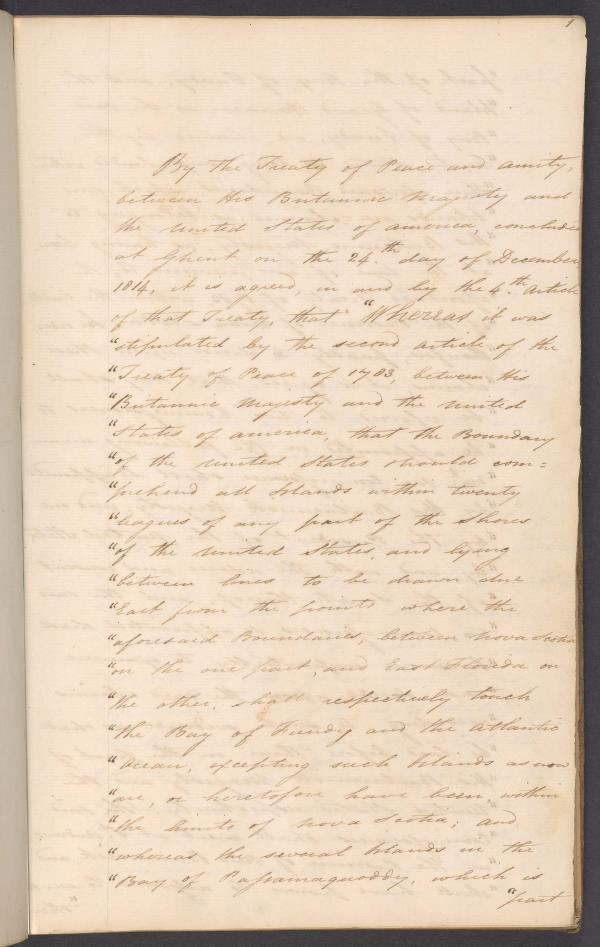 1
By the Treaty of Peace and amity,
between His Britannic Majesty and
the United States of America, concluded
at Ghent on the 24.th day of December
1814, it is agreed, in and by the 4.th Article
of that Treaty, that "Whereas it was
"stipulated by the second article of the
"Treaty of Peace of 1783, between His
"Britannic Majesty and the United
"States of America, that the Boundary
"of the United States should com=
"prehend all Islands within twenty
"leagues of any part of the Shores
"of the United States, and lying
"between lines to be drawn due
"East from the points where the
"aforesaid Boundaries, between Nova Scotia
"on the one part, and East Florida on
"the other, shall respectively touch
"the Bay of Fundy and the Atlantic
"Ocean, excepting such Islands as now
"are, or heretofore have been, within
"the limits of Nova Scotia; and
"whereas the several Islands in the
"Bay of Passamaquoddy, which is
"part